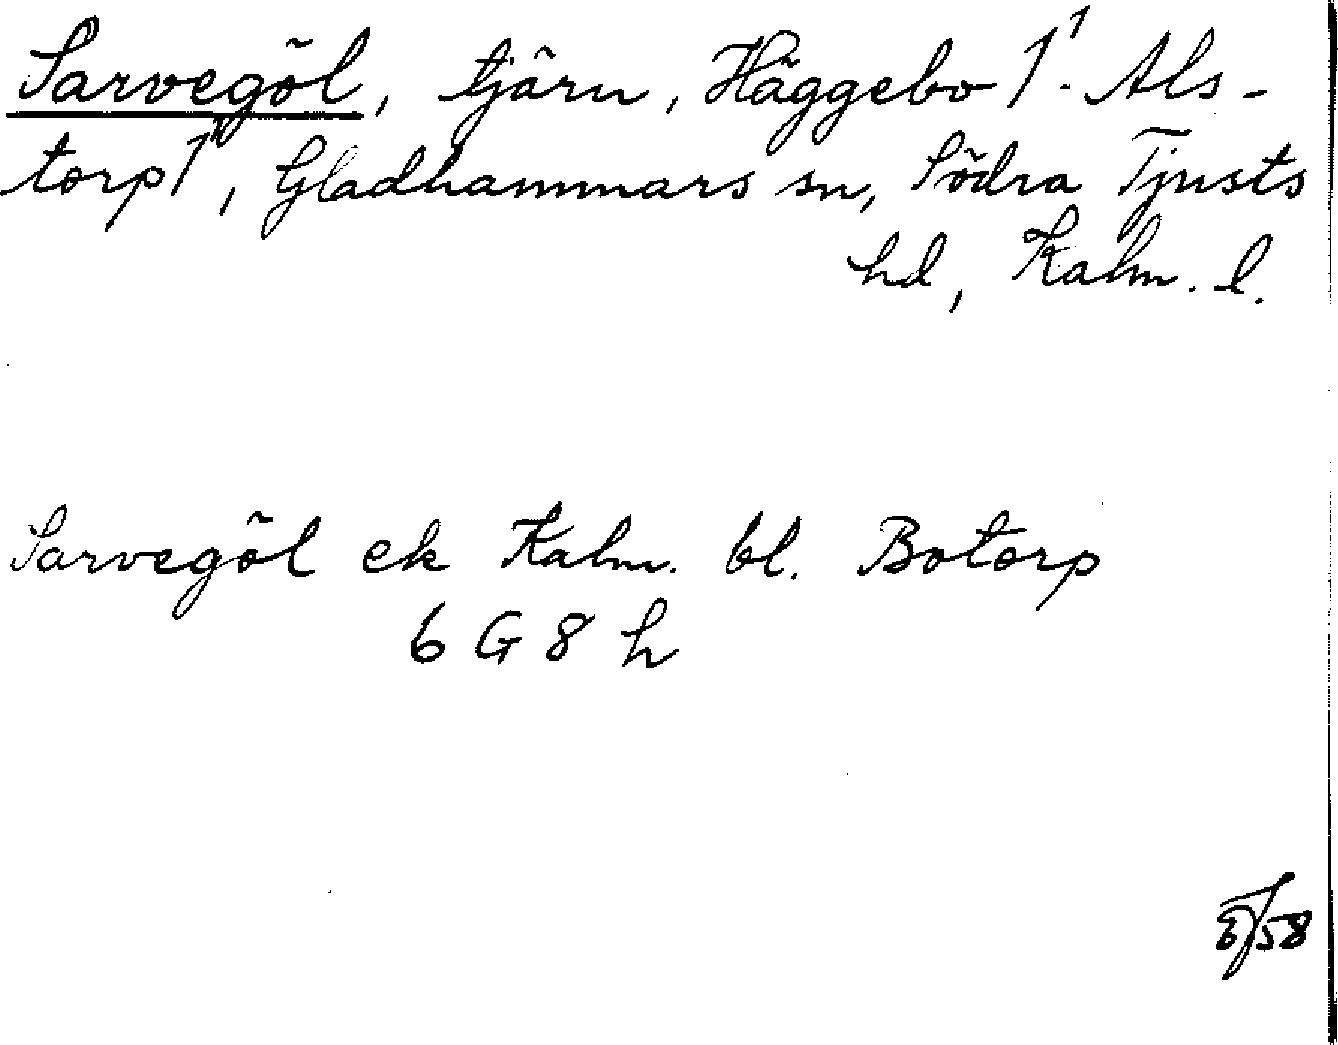 Sarvegöl, tjärn, Häggebo 1¹. Als-
torp 1⁴, Gladhammars sn, Södra Tjusts
hd, Kalm. l.
Sarvegöl ek Kalm. bl. Botorp
6 G 8 h
58